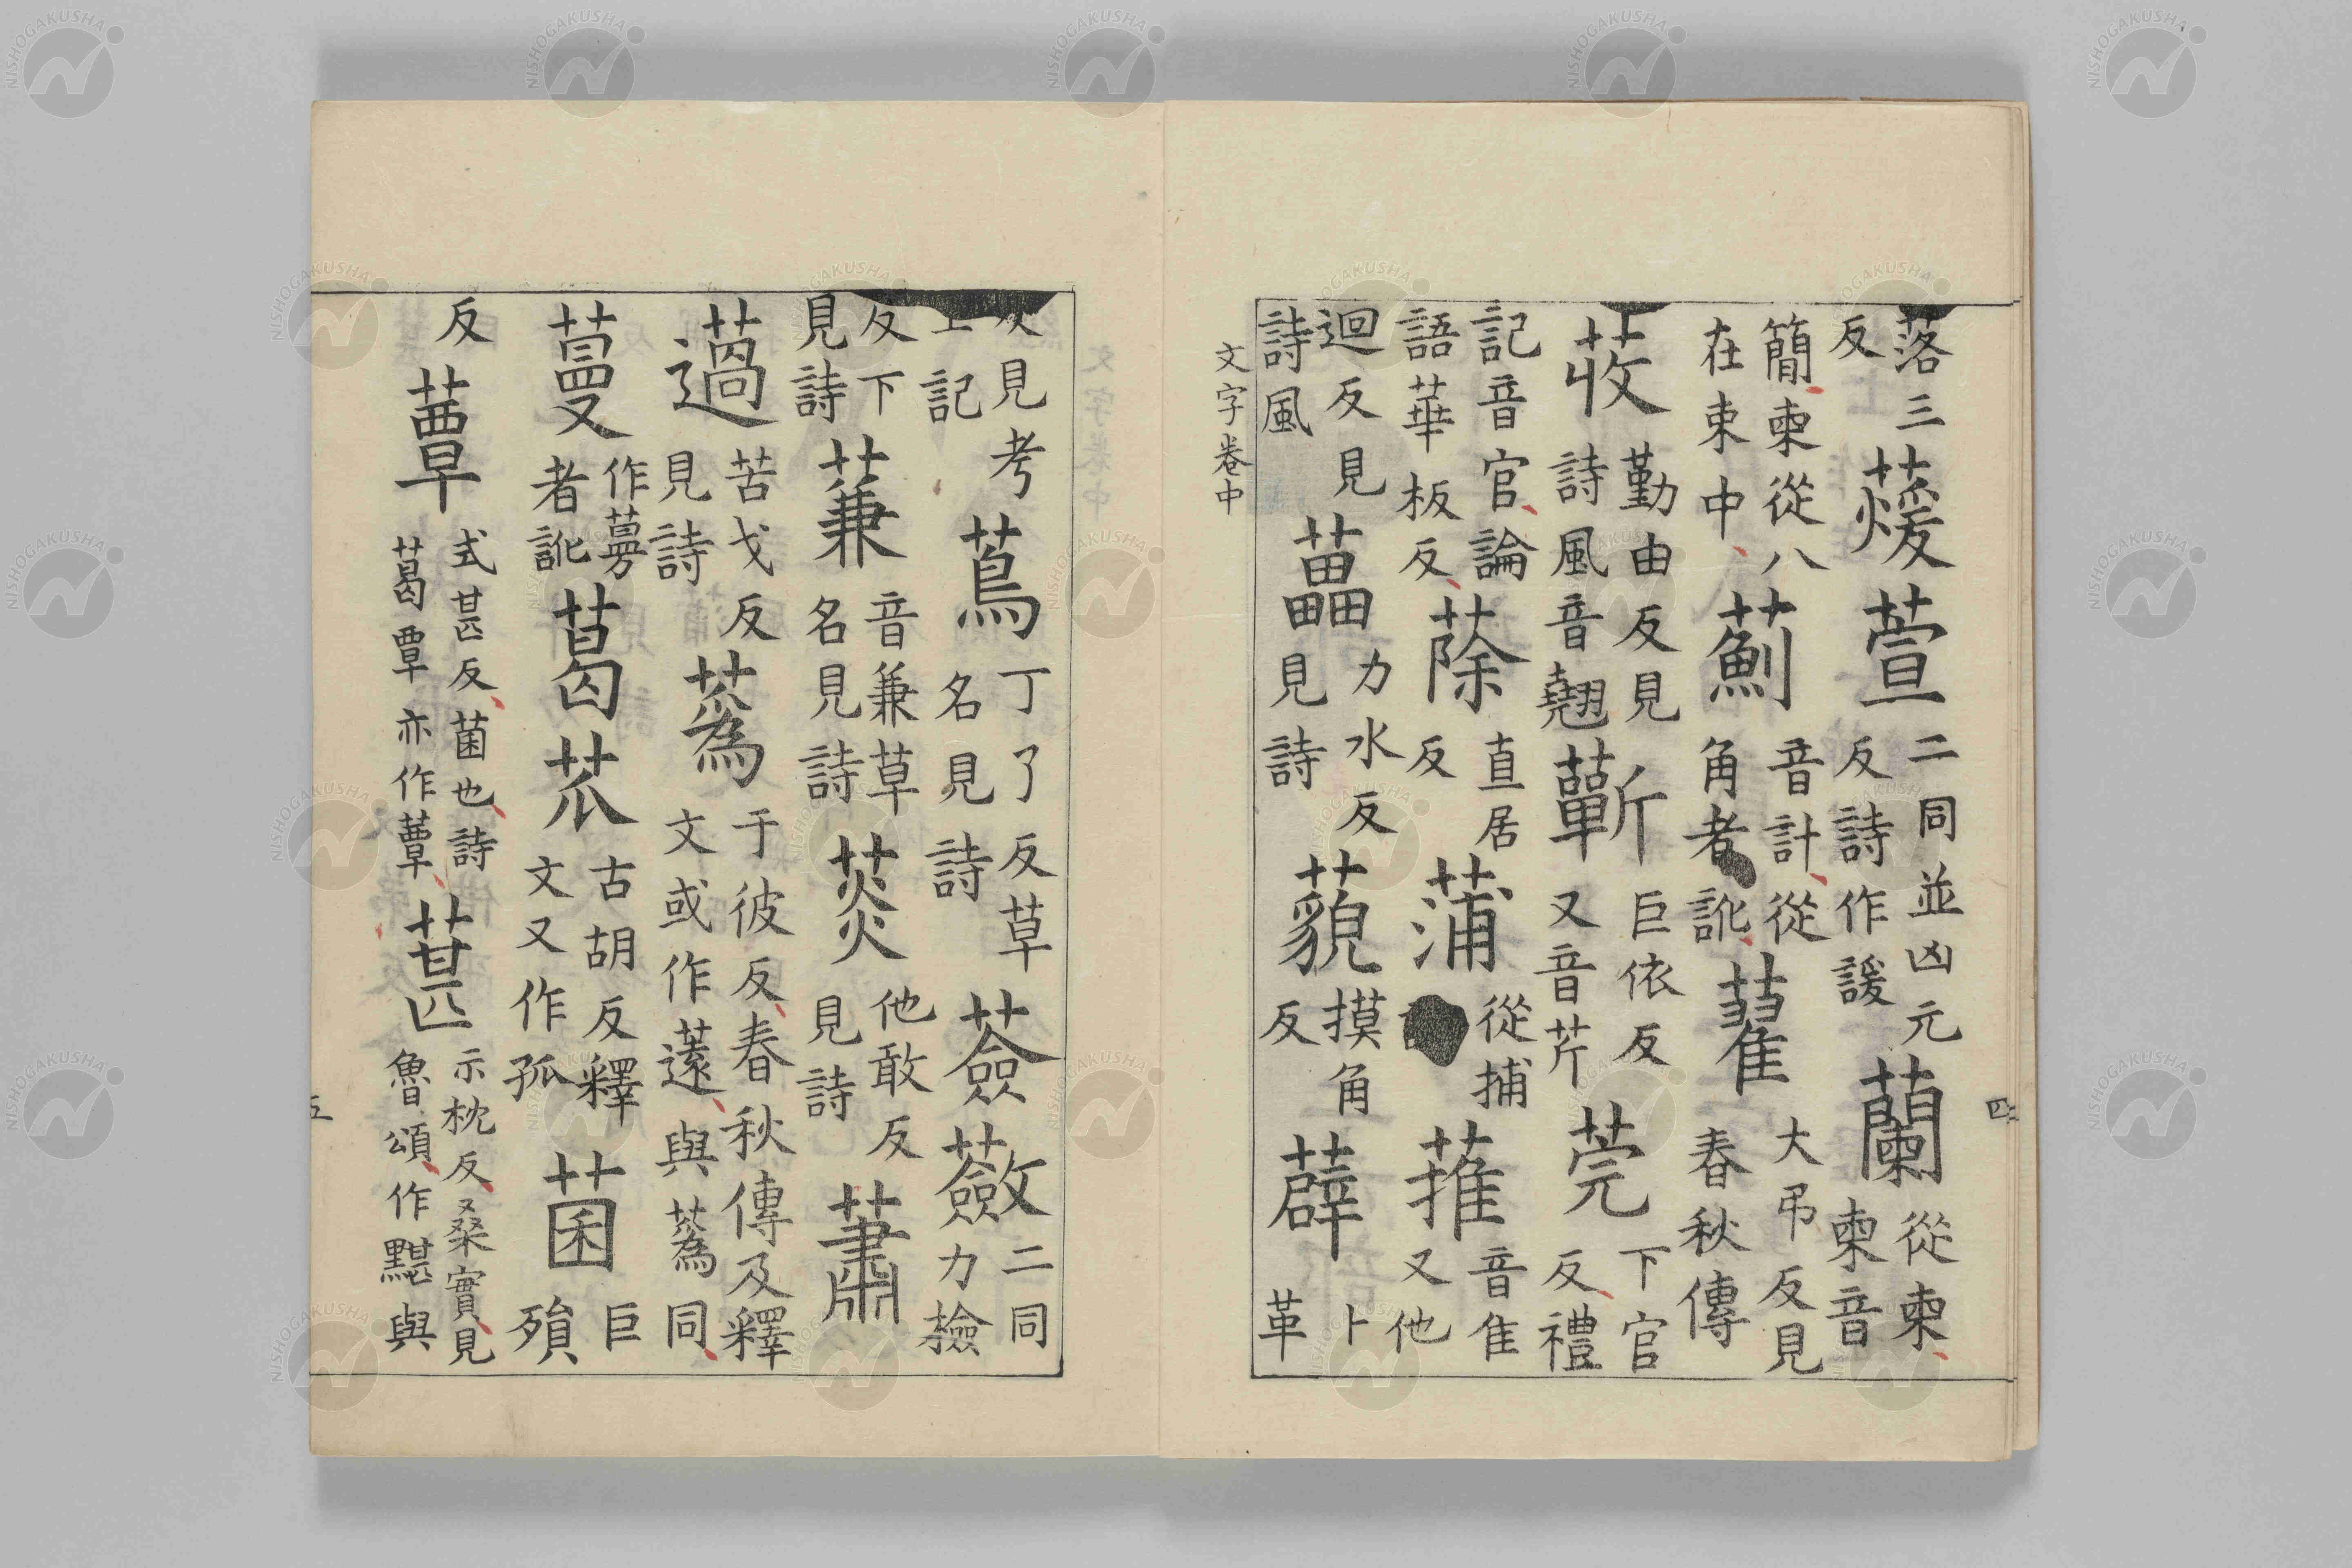 落三反蕿萱二同並凶元反詩作諼蘭從柬柬音
簡柬從八在束中薊音計從角者訛藋大弔反見春秋傳
荍勤由反見詩風音翹蘄巨依反又音芹莞下官反禮
記音官論語華板反蒢直居反蒲從捕蓷音隹又他
迴反見詩風藟力水反見詩藐摸角反薜卜革
文字卷中
四
反見考工記蔦丁了反草名見詩薟蘞二同力檢
反下見詩蒹音兼草名見詩菼他敢反見詩蕭
薖苦戈反見詩蒍于彼反春秋傳及釋文或作薳與蒍同
蔓作者訛葛苽古胡反釋文又作孤菌巨殞
反蕈式甚反菌也詩葛覃亦作蕈葚示枕反桑實見魯頌作黮與
五